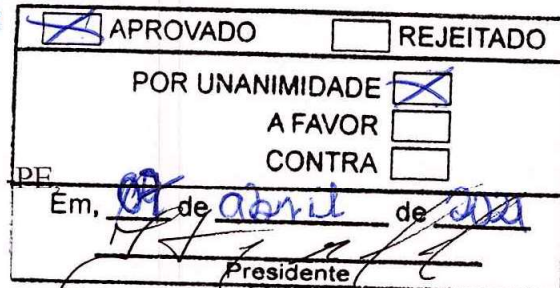 APROVADO REJEITADO
POR UNANIMIDADE
A FAVOR
CONTRA
PE,
Em, de abril de
Presidente